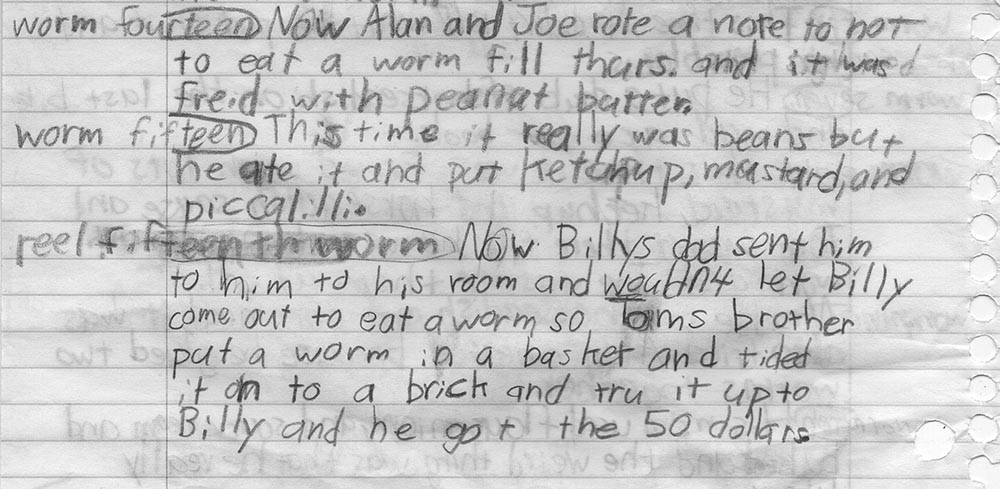 worm fourteen Now Alan and Joe rote a note to not
to eat a worm fill thurs. and it was
freid with peanat batter.
worm fifteen This time it really was beans but
he ate it and put ketchup, mustard, and
piccalilli.
reel fifteenth worm Now Billys dad sent him
to him to his room and wouldn't let Billy
come out to eat a worm so Toms brother
put a worm in a basket and tided
it on to a brick and tru it up to
Billy and he got the 50 dollars